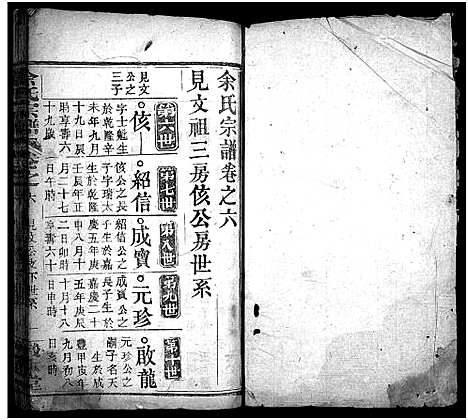 余氏宗譜卷之六
見文祖三房侅公房世系
見文公之三子
侅
字士魁生於乾隆辛未年九月十九日辰時享壽六十九歲
第七世
紹信
侅公之長子字瑞太生於乾隆壬辰年正月二十七日午時
第八世
成寶
紹信公之長子生於嘉慶五年庚申八月十二日卯時享壽六十
第九世
元珍
成寶公之長子生於嘉慶二十五年庚辰十月十八日申時
第十世
啟龍
元珍公之嗣子名天生於咸豐甲寅年九月初八日亥時
余氏宗譜 卷之六 見文公位下世系